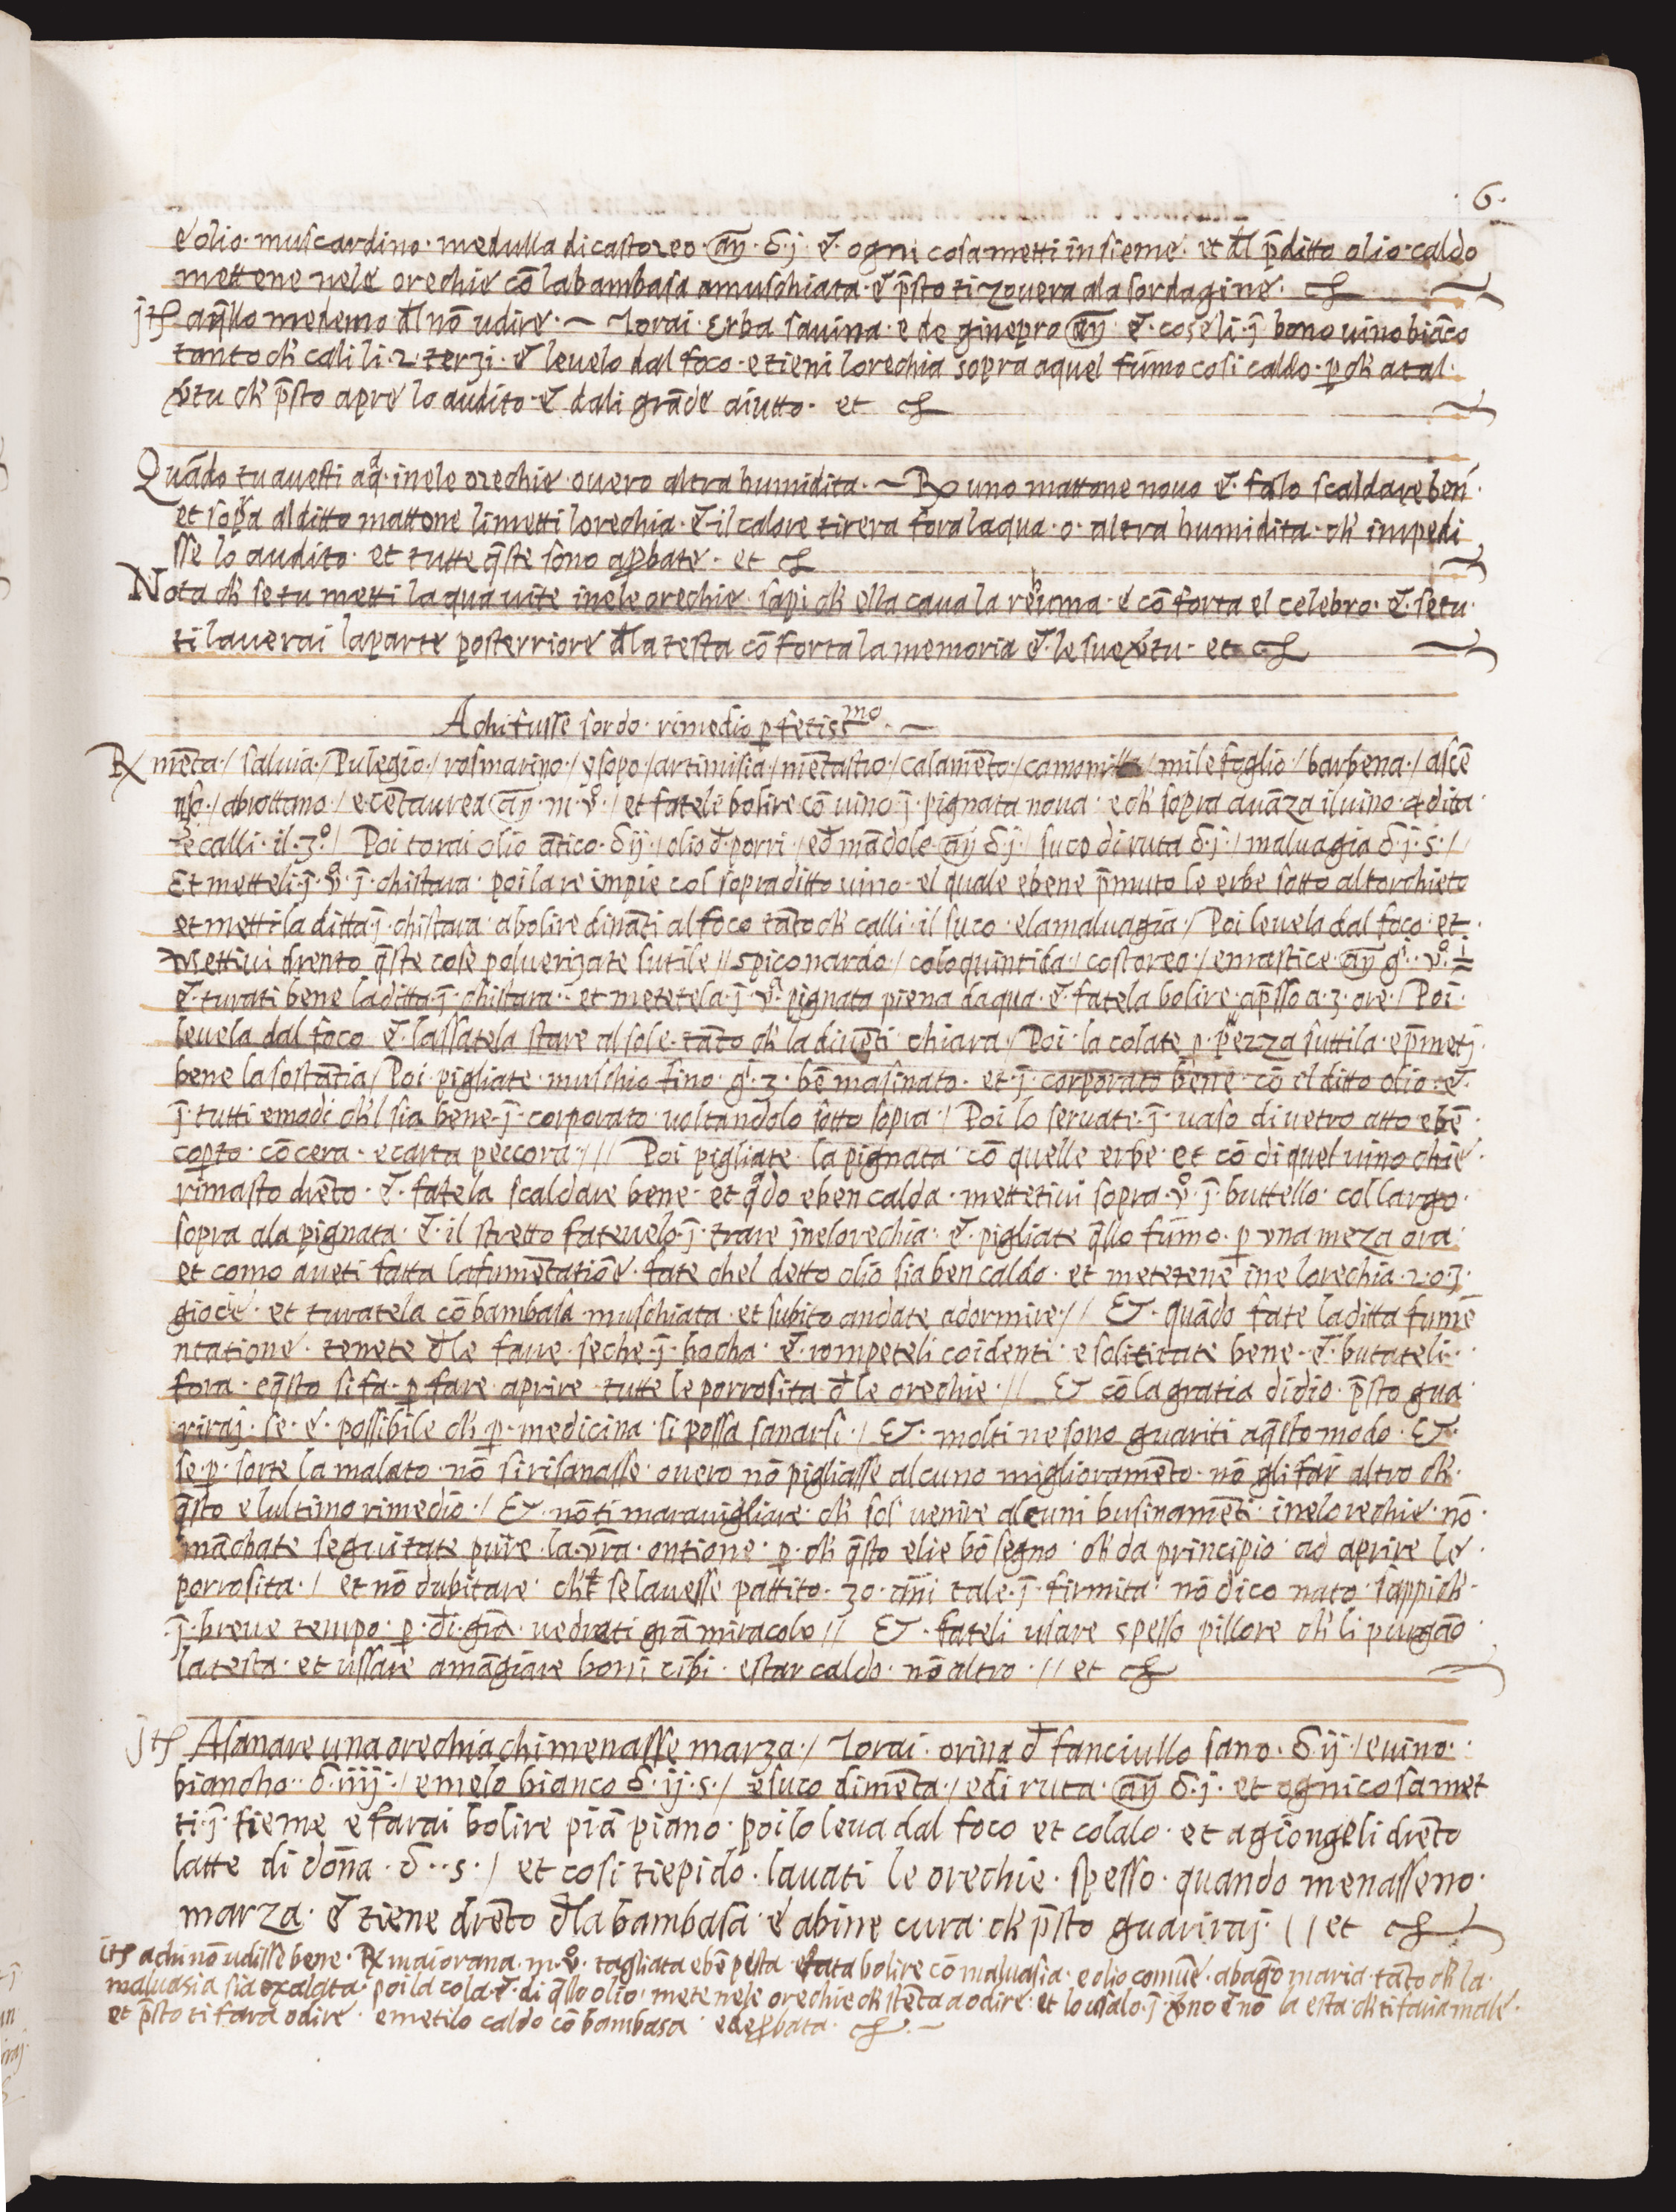 ·6·
e olio · muscardino · medulla di castoreo · añ · δ · j · e · ogni cosa metti insieme · et dl p̄ditto olio · caldo
mettene nele orechie cō la bambasa amuschiata · e p̄sto ti zovera ala sordagine ·
jtẽ a q̄llo medemo dl nō udire · ~ Torai · Erba savina · e de ginepro añ · e · coseli · j̄ bono vino biāco
tanto ch' cali li · 2 · terzi · e levelo dal foco · e tieni lorechia sopra a quel fumo cosi caldo · p̱ ch' a tal ·
v̄tu ch' p̄sto apre lo audito · e dali grāde aiutto · et
Quādo tu avesti aq̄ᵃ · in ele orechie · overo altra humidita · ~ ℞ uno mattone novo e · falo scaldare ben ·
et sop̱ra al ditto mattone li metti lorechia · e · il calore tirera fora laqua · o · altra humidita · ch' impedi
sse lo audito · et tutte q̄ste sono aꝓbate · et
Nota ch' se tu metti laqua vite in ele orechie · sapi ch' ella cava la reuma · e cō forta el celebro · e · se tu ·
ti laverai la parte posterriore dla testa cō forta la memoria e · le sue v̄tu · et
A chi fusse sordo · rimedio p̱fetissᵐᵒ · ~
℞ mēta · / salvia · / Pulegio · / rosmarino · / ysopo · / artimisia · / mētastro · / calamēto · / camomilla / milefoglio · / barbena · / ascē
nso · / abrottano · / e cētaurea añ · m · v° · / et fateli bolire cō vino j̄ · pignata nova · e ch' sopra avāza il vino · 4 dita ·
e calli · il · 3° / Poi torai olio ātico · δ ij · / olio d · porri · / e d mādole · añ δ · j · / suco di ruta δ · j · / malvagia δ · j · s · / /
Et metteli · j̄ · v° · j̄ · chistara · poi la reimpie col sopraditto vino · el quale ebene p̄muto le erbe sotto al torchieto
et metti la ditta j̄ · chistara · a bolire dināti al foco tāto ch' calli · il suco · e la malvagia · / Poi levela dal foco · et ·
Mettivi drento q̄ste cose polverizate sutile / / spiconardo · / coloquintida · / costoreo · / e mastice añ gⁱ · v° · i
e · turati bene la ditta · j̄ · chistara · · et metetela · j̄ · vᵃ · pignata piena daqua · e · fatela bolire · ap̄sso a · 3 · ore · / Poi ·
levela dal foco e · lassatela stare al sole · tāto ch' la divēti chiara · / Poi · la colate p̱ · pezza suttila · e p̄metj ·
bene la sostātia / Poi · pigliate · muschio fino · gⁱ · 3 · bē masinato · et · j̄ · corporato bene · cō el ditto olio · e ·
j̄ · tutti e modi ch'l sia bene · j̄ · corporato · voltandolo sotto sopra · / Poi lo servate · j̄ · vaso di vetro atto e bē ·
cop̱to · cō cera · e carta peccora · / / / Poi pigliate · la pignata · cō quelle erbe · et cō di quel vino chie ·
rimasto drēto · e · fatela scaldare bene · et q̄ᵃdo e ben calda · mettetivi sopra · v° · j̄ · buttello · col largo ·
sopra ala pignata · e · il stretto fatevelo · j̄ · trare j̄nelorechia · e · pigliate q̄llo fumo · p̱ vna meza ora ·
et como aveti fatta la fumētatiōe · fate chel detto olio sia ben caldo · et metetene inelorechia · 2 · o · 3 ·
giocie · et turatela cō bambasa muschiata · et subito andate adormire · / / Et · quādo fate la ditta fumē
ntatione · tenete dle fave · seche · j̄ · bocha · e · rompeteli coi denti · e soliticate bene · e · butateli · ·
fora · e q̄sto si fa · p̱ fare aprire · tutte le porrosita dle orechie · / / Et cō la gratia di dio · p̄sto gua
riraj · se · e · possibile ch' p̱ · medicina · si possa sanarsi · / Et · molti ne sono guariti a q̄sto modo · Et ·
se · p̱ · sorte lamalato · nō si risanasse · overo nō pigliasse alcuno miglioramēto · nō gli far altro ch' ·
q̄sto e lultimo rimedio · / Et · nō ti maravigliare · ch' sol venire alcuni businamēti · inelorechie · nō ·
māchate seguitate pure · la v̄ra · ontione · p̱ · ch' q̄sto elie bō segno · ch' da principio · ad aprire le ·
porrosita · / et nō dubitare · ch' se lavesse pattito · 30 · āni tale · j̄ · firmita · nō dico nato · sappi ch' ·
j̄ · breve tempo · p̱ · di · gīa · vedrati grā miracolo / / Et · fateli usare spesso pillore ch' li purgāo
la testa · et ussare amāgiare boni cibi · e star caldo · nō altro · / / et
jtẽ A sanare una orechia chi menasse marza · / Torai · orina d fanciullo sano · δ · ij · / e vino · ·
biancho · · δ · iiij · · / e melo bianco δ · ij · s · / e suco di mēta · / e di ruta · añ δ · j · et ogni cosa met
ti · j̄ · sieme e farai bolire piā piano · poi lo leva dal foco et colalo · et agiongeli drēto
latte di dona · δ · · s · / et cosi tiepido · lavati le orechie · spesso · quando menasseno ·
marza · e tiene drēto dla bambasa · e abine cura · ch' p̄sto guariraj · / / et
itẽ a chi nō udisse bene · ℞ maiorana · m · v° · tagliata e bē pesta · e fata bolire cō malvasia · e olio comūe · a bagno maria · tāto ch' la ·
malvasia sia exalata · poi la cola · e · di q̄llo olio · mete nele orechie ch' stēta a odire · et lo usalo · j̄ · v̄no e nō la esta · ch' ti faria male ·
et p̄sto ti fara odire · e metilo caldo cō bambasa · ed e ꝓbata ·